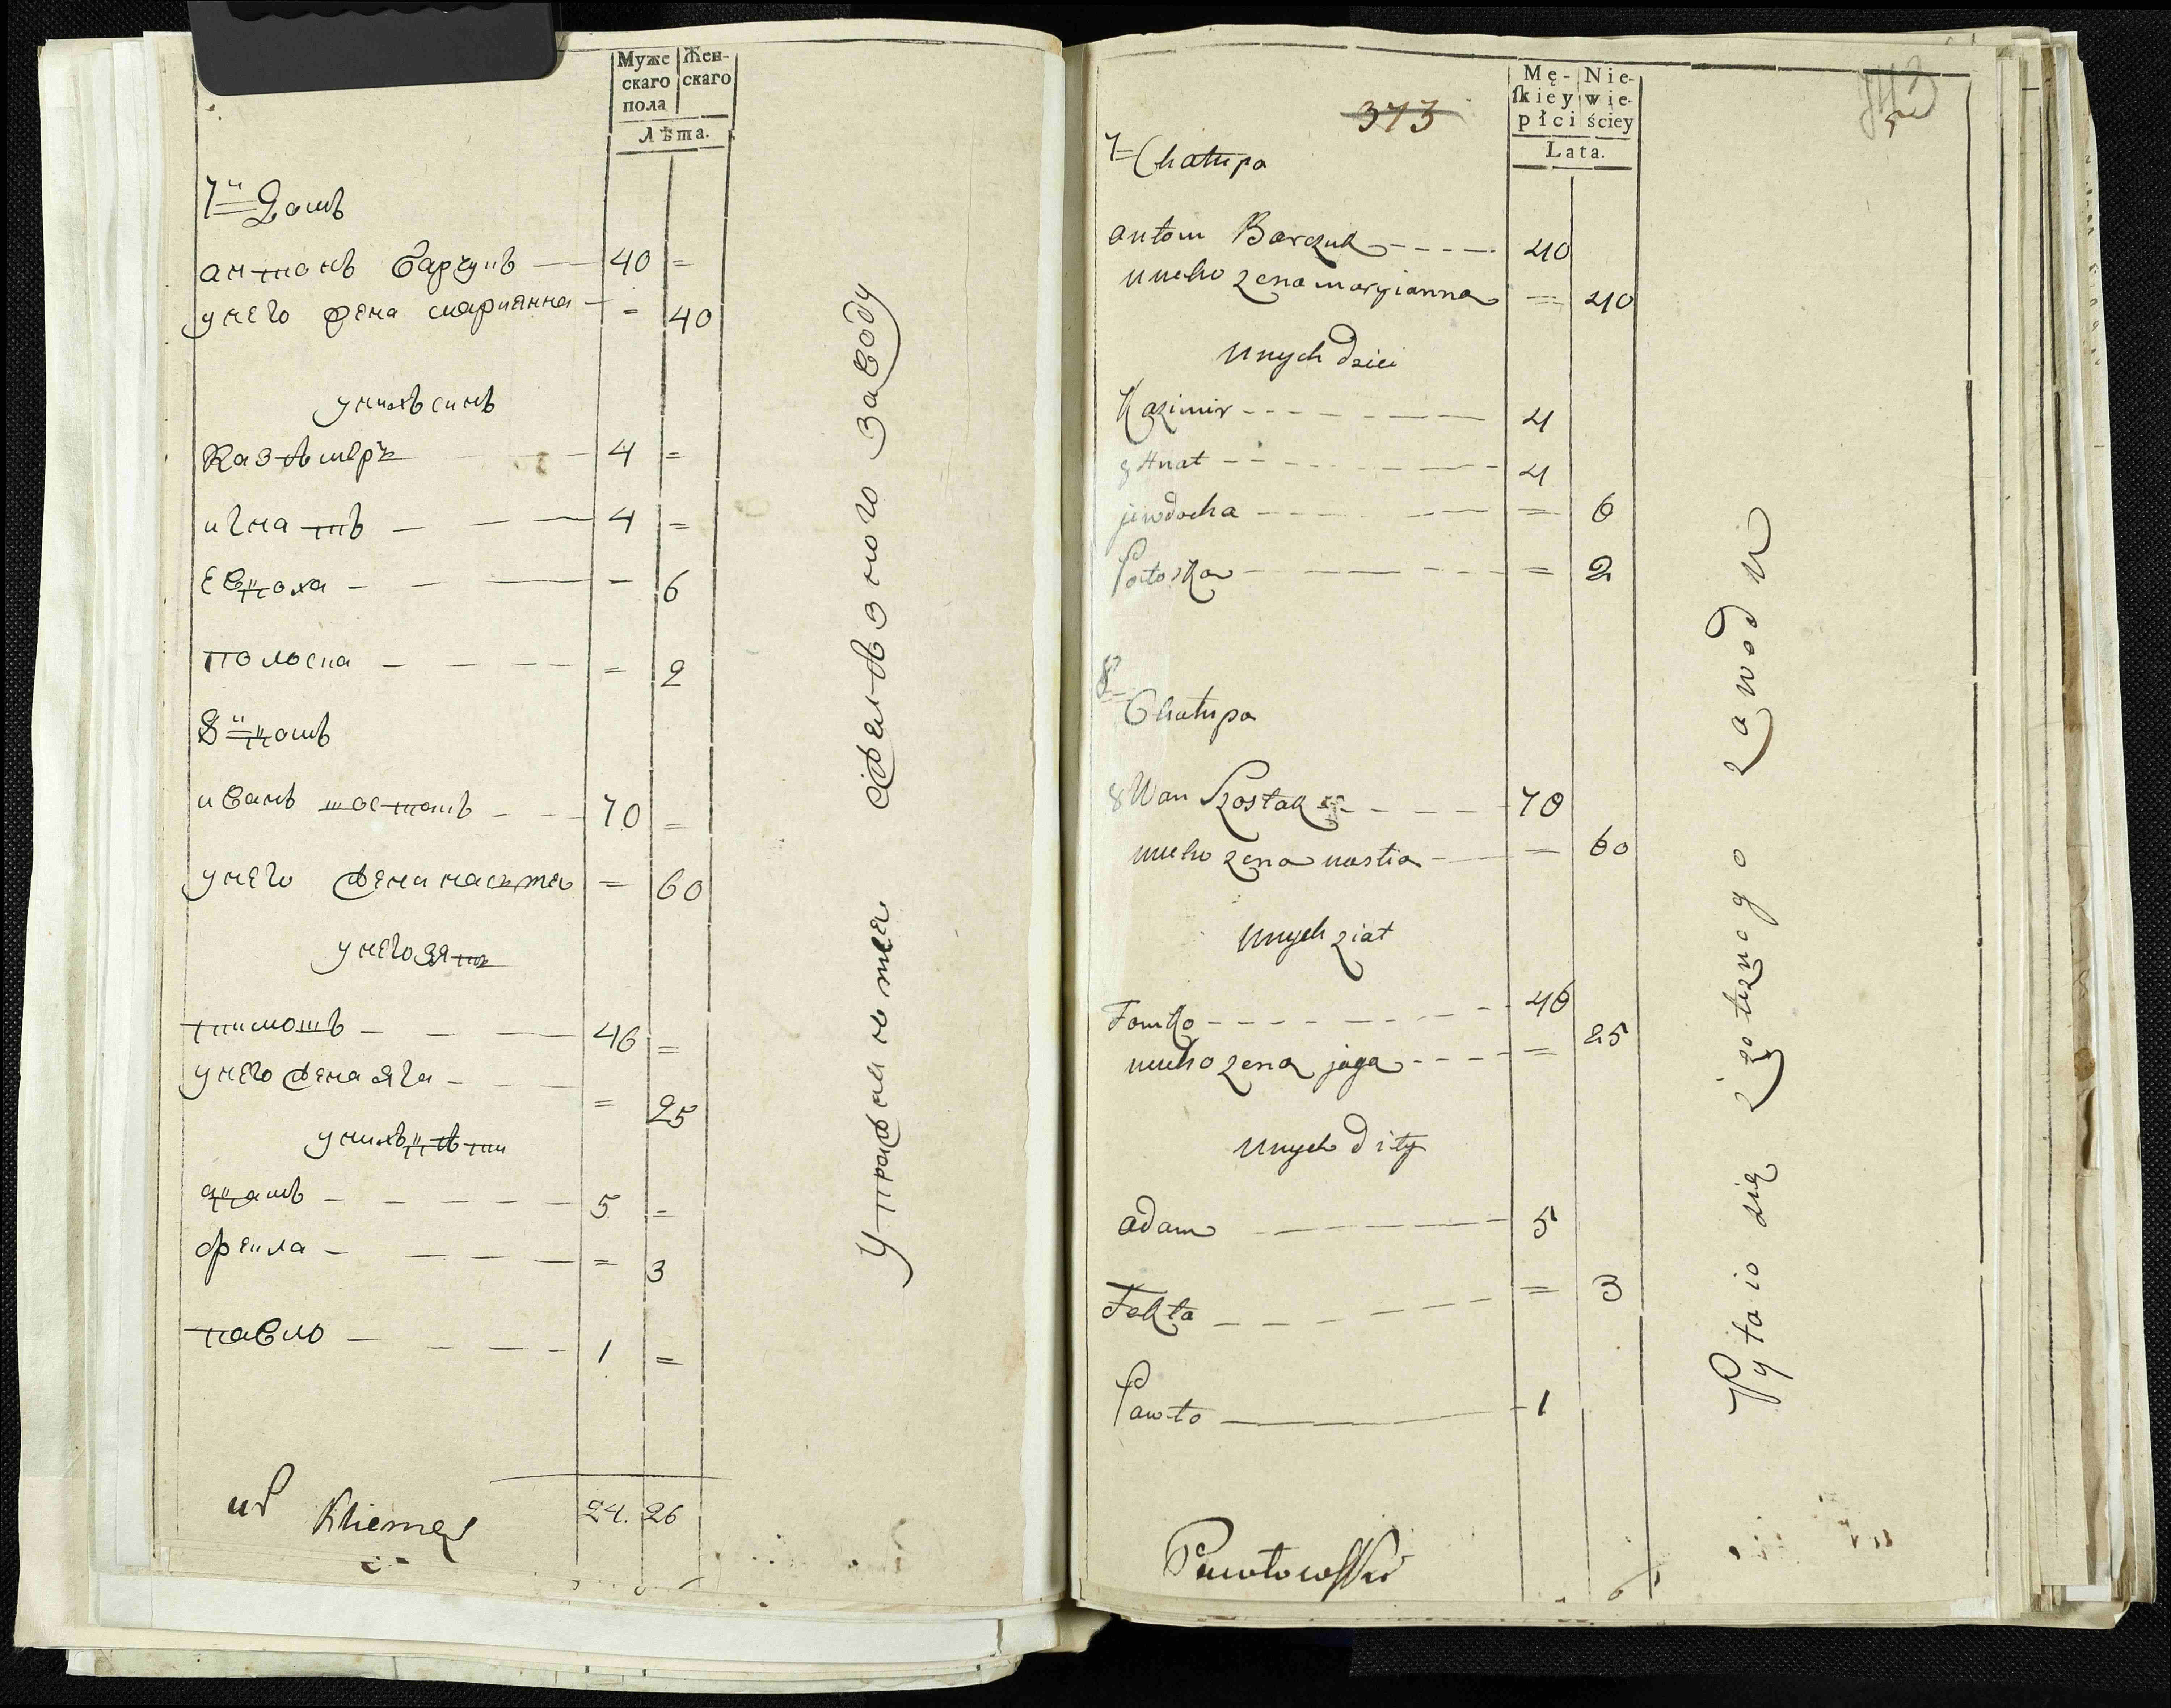 Муже
скаго
пола
Жен-
скаго
Лѣта.
7й Домъ
антонъ барчукъ — 40 =
унего жена марианна — = 40
унихъ синъ
Казѣмеръ — 4 =
игнатъ — 4 =
евдоха — = 6
полоска — = 2
8й домъ
иванъ шостакъ — 70 =
унего жена настя = 60
унего зять
тимошъ — 46 =
унего жена яга — = 25
унихъ дѣти
адамъ — 5 =
фекла — = 3
павло — 1 =
24. 26
373
Mę-
ſkiey
płci
Nie-
wie-
ściey
Lata.
7 Chałupa
antoni Barczuk — 40
uneho zena maryianna = 40
unych dzieci
Kazimir — 4
Hnat — 4
jewdocha — = 6
Połoska — = 2
8
Chałupa
Wan Szostak — 70
uneho zena nastia — = 60
unych ziat
Tomko — 46
uneho zena jaga — = 25
unych dity
adam — 5
Fekła — = 3
Pawło — 1
zawodu